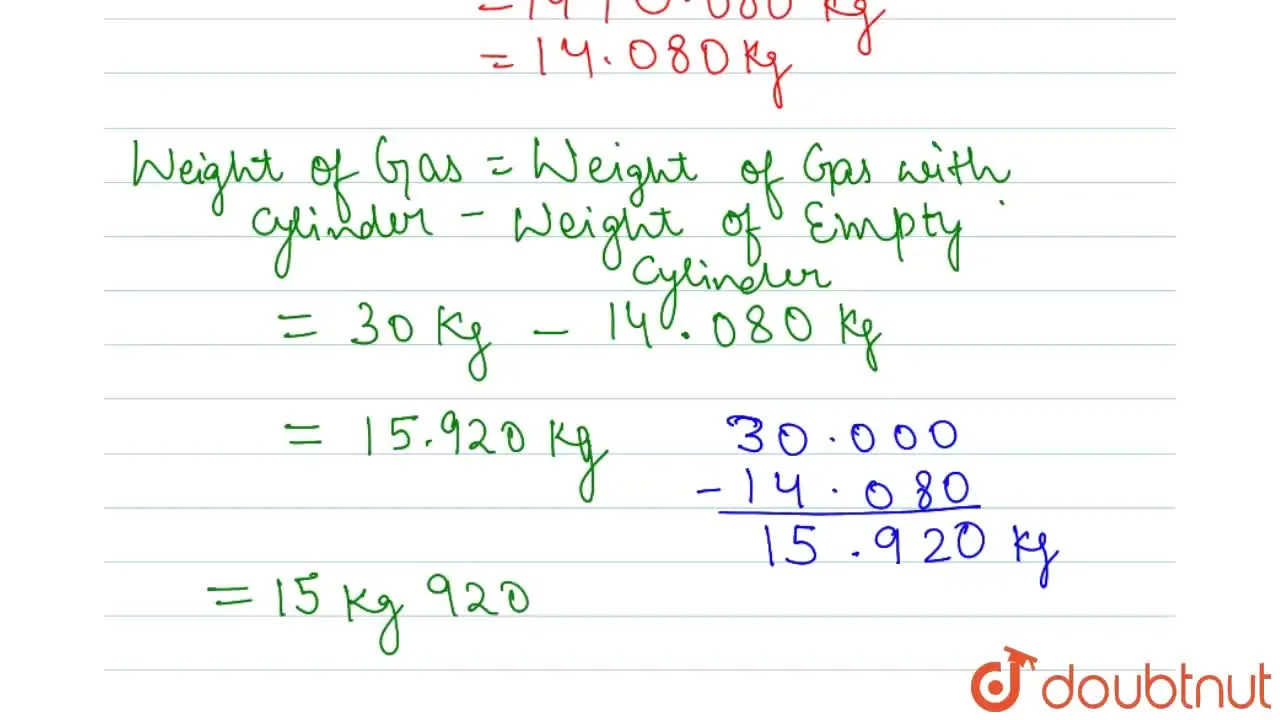 = 14 + 0.080 Kg
= 14.080 Kg
Weight of Gas = Weight of Gas with
cylinder - Weight of Empty
Cylinder
= 30 Kg - 14.080 Kg
= 15.920 Kg
30.000
- 14.080
15.920 Kg
= 15 Kg 920
doubtnut